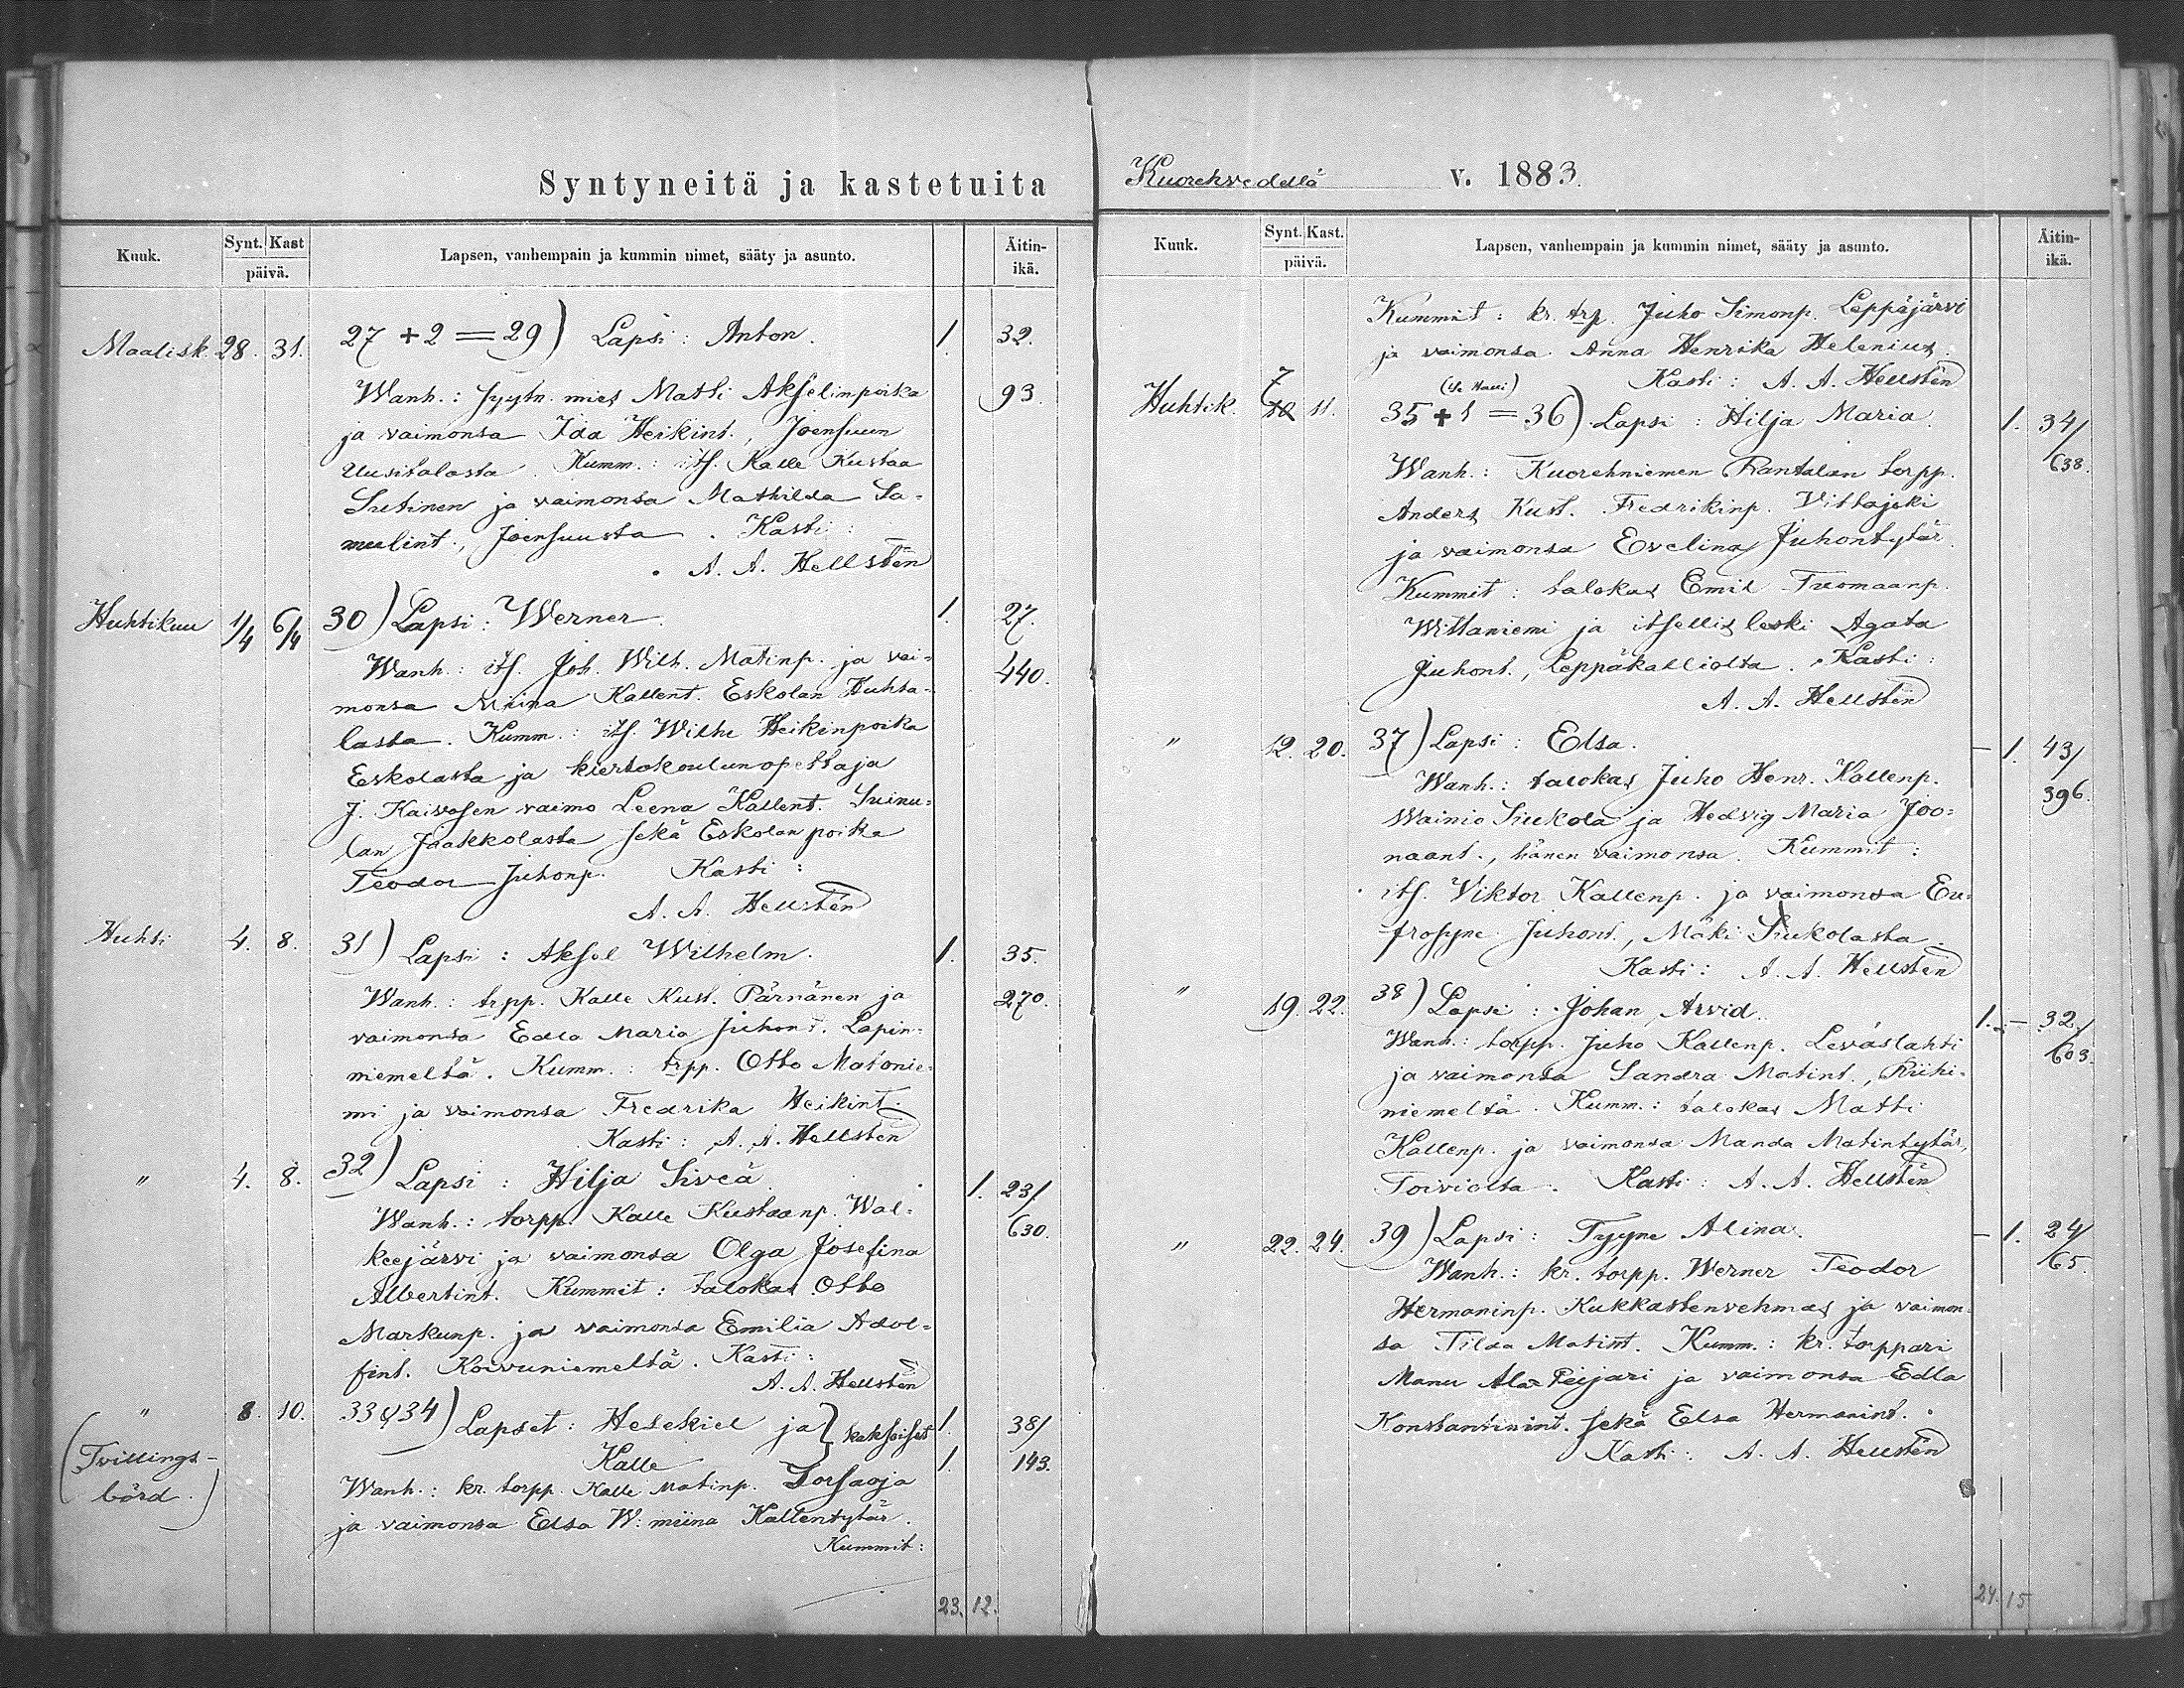 Syntyneitä ja kastetuita
Kuuk. Synt. Kast päivä. Lapsen, vanhempain ja kummin nimet, sääty ja asunto. Äitin-ikä.
Maalisk. 28. 31. 27 + 2 = 29) Lapsi: Anton. 1. 32.
Wanh.: syytn. mies Matti Akselinpoika 93.
ja vaimonsa Ida Heikint., Joensuun
Uusitalosta. Kumm.: its. Kalle Kustaa
Sutinen ja vaimonsa Mathilda Sa-
mulint., Joensuusta. Kasti:
A. A. Hellstén
Huhtikuu 1/4 6/4 30) Lapsi: Werner. 1. 27.
Wanh.: its. Joh. Wilh. Matinp. ja vai- 440.
monsa Miina Kallent. Eskolan Huhta-
lasta. Kumm.: its. Wilhe Heikinpoika
Eskolasta ja kiertokoulunopettaja
J. Kaivosen vaimo Leena Kallent. Suinu-
lan Jaakkolasta sekä Eskolan poika
Teodor Juhonp. Kasti:
A. A. Hellstén
Huhti 4. 8. 31) Lapsi: Aksel Wilhelm. 1. 35.
Wanh.: trpp. Kalle Kust. Pärnänen ja 270.
vaimonsa Edla Maria Juhont. Lapin-
niemeltä. Kumm.: trpp. Otto Matonie-
mi ja vaimonsa Fredrika Heikint.
Kasti: A. A. Hellstén
" 4. 8. 32) Lapsi: Hilja Siveä. 1. 23/
Wanh.: torpp. Kalle Kustaanp. Wal- 630.
keejärvi ja vaimonsa Olga Josefina
Albertint. Kummit: talokas Otto
Markunp. ja vaimonsa Emilia Adol-
fint. Koivuniemeltä. Kasti:
A. A. Hellstén
" 8. 10. 33 & 34) Lapset: Hesekiel ja } kaksoiset 1. 38/
(Tvillings- Kalle 1. 143.
börd.) Wanh.: kr. torpp. Kalle Matinp. Torsaoja
ja vaimonsa Elsa W:miina Kallentytär.
Kummit:
23. 12.
Kuorehvedellä v. 1883.
Kuuk. Synt. Kast. päivä. Lapsen, vanhempain ja kummin nimet, sääty ja asunto. Äitin-ikä.
Kummit: kr. trp. Juho Simonp. Leppäjärvi
ja vaimonsa Anna Henrika Helenius.
Kasti: A. A. Hellstén
Huhtik. 7 10 11. 35 + 1 = 36) Lapsi: Hilja Maria. 1. 34/
Wanh.: Kuorehniemen Rantalan torpp. 638.
Anders Kust. Fredrikinp. Vittajoki
ja vaimonsa Evelina Juhontytär.
Kummit: talokas Emil Tuomaanp.
Wittaniemi ja itsellis leski Agata
Juhont., Leppäkalliolta. Kasti:
A. A. Hellstén
" 12. 20. 37) Lapsi: Elsa. – 1. 43/
Wanh.: talokas Juho Henr. Kallenp. 396.
Wainio Siukola ja Hedvig Maria Joo-
naant., hänen vaimonsa. Kummit:
its. Viktor Kallenp. ja vaimonsa Eu-
frosyne Juhont., Mäki Siukolasta.
Kasti: A. A. Hellstén
" 19. 22. 38) Lapsi: Johan Arvid. 1. – 32./
Wanh.: torpp. Juho Kallenp. Leväslahti 603.
ja vaimonsa Sandra Matint., Riihi-
niemeltä. Kumm.: talokas Matti
Kallenp. ja vaimonsa Manda Matintytär,
Toiviolta. Kasti: A. A. Hellstén
" 22. 24. 39) Lapsi: Tyyne Alina. – 1. 24/
Wanh.: kr. torpp. Werner Teodor 65.
Hermaninp. Kukkastenvehmas ja vaimon-
sa Tilda Matint. Kumm.: kr. torppari
Manu Ala-Peijari ja vaimonsa Edla
Konstantinint. sekä Elsa Hermanint.
Kasti: A. A. Hellstén
24. 15